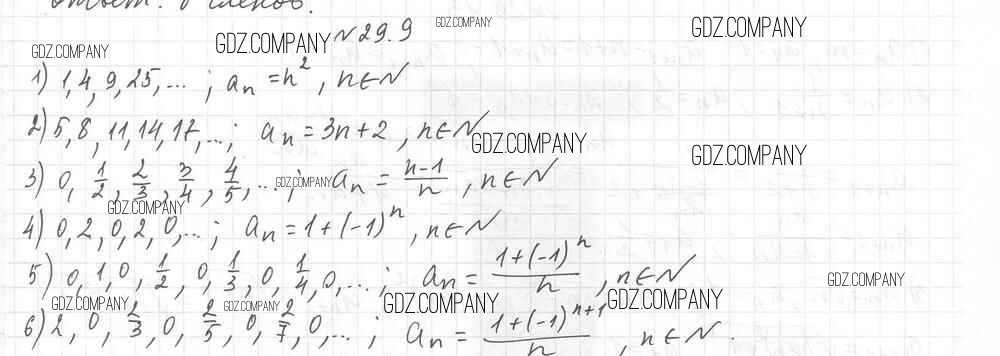 GDZ.COMPANY
GDZ.COMPANY № 29.9 GDZ.COMPANY
GDZ.COMPANY
1) 1, 4, 9, 25, ... ; aₙ = n², n∈N
2) 5, 8, 11, 14, 17, ... ; aₙ = 3n + 2, n∈N
GDZ.COMPANY GDZ.COMPANY
3) 0, 1/2, 2/3, 3/4, 4/5, ... ; GDZ.COMPANY aₙ = (n-1)/n, n∈N
GDZ.COMPANY
4) 0, 2, 0, 2, 0, ... ; aₙ = 1 + (-1)ⁿ, n∈N
5) 0, 1, 0, 1/2, 0, 1/3, 0, 1/4, 0, ... ; aₙ = (1+(-1)ⁿ)/n, n∈N
GDZ.COMPANY
GDZ.COMPANY GDZ.COMPANY GDZ.COMPANY GDZ.COMPANY
6) 2, 0, 2/3, 0, 2/5, 0, 2/7, 0, ... ; aₙ = (1+(-1)ⁿ⁺¹)/n, n∈N.